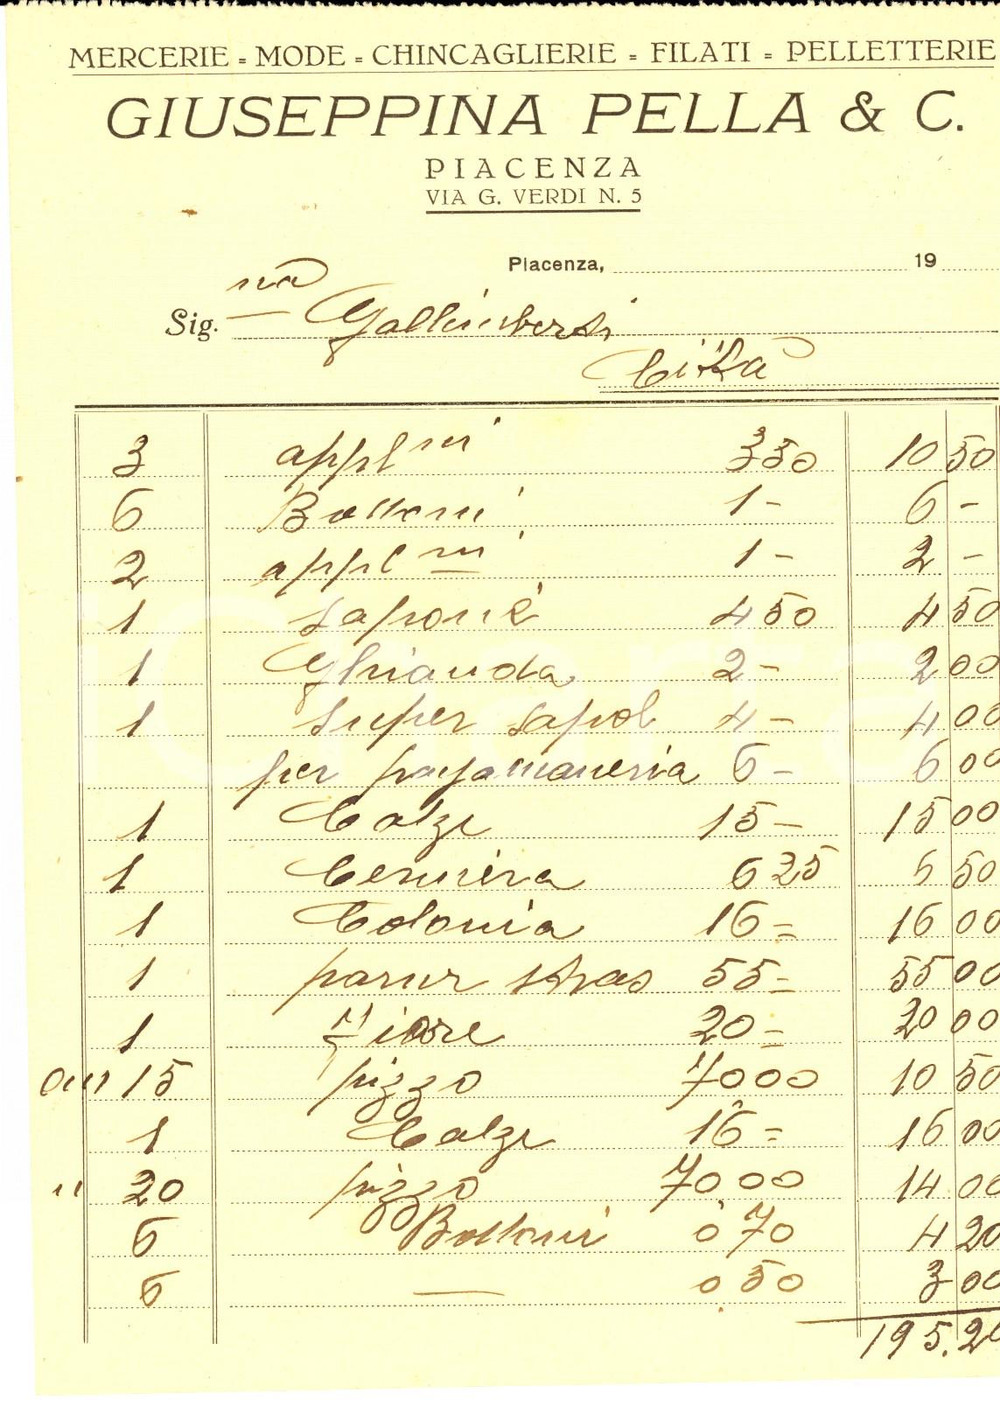 MERCERIE = MODE = CHINCAGLIERIE = FILATI = PELLETTERIE
GIUSEPPINA PELLA & C.
PIACENZA
VIA G. VERDI N. 5
Piacenza, 19
Sig. na Gallimberti
Città
3 appl ni 3 50 10 50
6 Bottoni 1 - 6 -
2 appl ni 1 - 2 -
1 sapone 4 50 4 50
1 Ghianda 2 - 2 00
1 super sapol 4 - 4 00
per passamaneria 6 - 6 00
1 Calze 15 - 15 00
1 6 25 6 50
1 Colonia 16 = 16 00
1 parur stras 55 = 55 00
1 Fiore 20 = 20 00
cm 15 pizzo 70 00 10 50
1 Calze 16 = 16 00
" 20 pizzo 70 00 14 00
6 Bottoni 0 70 4 20
6 — 0 50 3 00
195.20